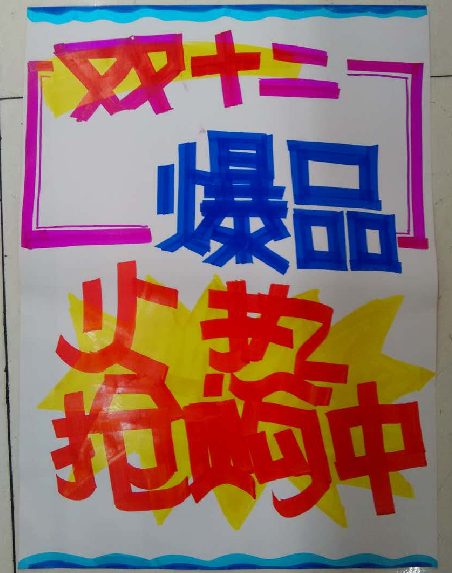 双十二
爆品
火热
抢购中